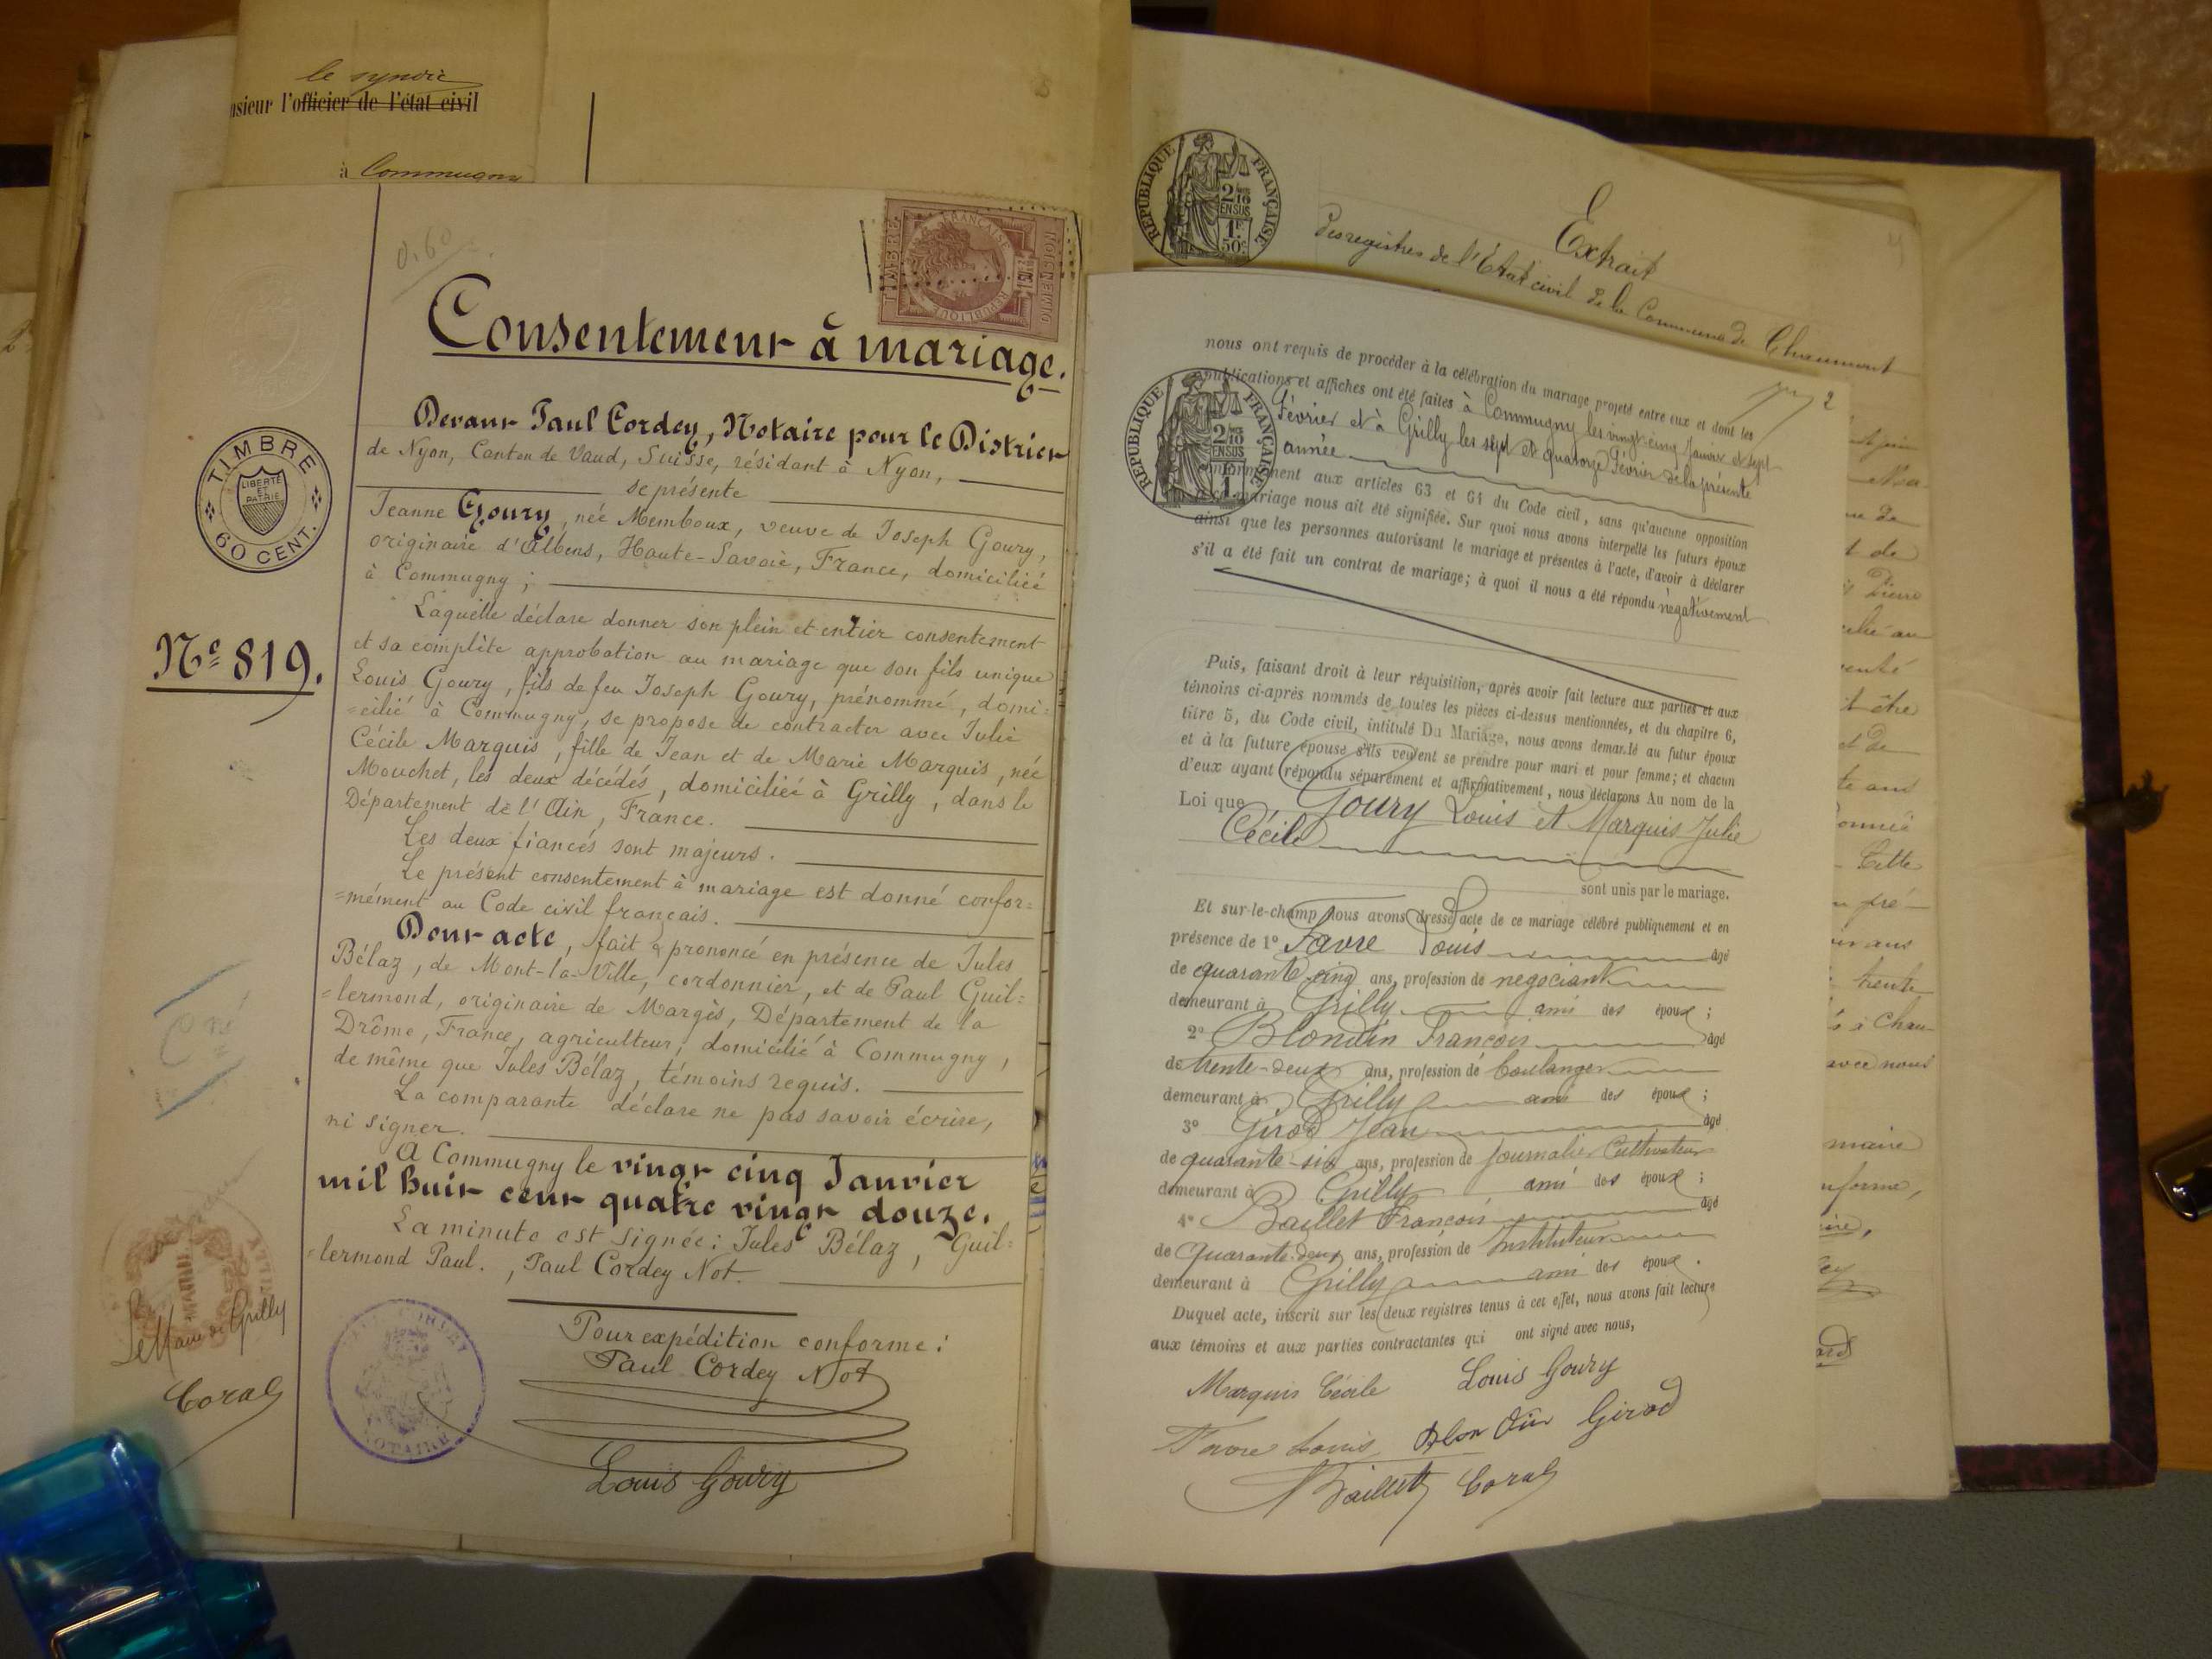 le syndic
nsieur l'officier de l'état civil
à Commugny
0,60
TIMBRE
FRANÇAISE
REPUBLIQUE
DIMENSION
Consentement à mariage.
Devant Paul Cordey, Notaire pour le District
de Nyon, Canton de Vaud, Suisse, résidant à Nyon,
se présente
Jeanne Goury, née Memboux, veuve de Joseph Goury,
originaire d'Albens, Haute-Savoie, France, domiciliée
à Commugny;
Laquelle déclare donner son plein et entier consentement
et sa complète approbation au mariage que son fils unique
Louis Goury, fils de feu Joseph Goury, prénommé, domi=
=cilié à Commugny, se propose de contracter avec Julie
Cécile Marquis, fille de Jean et de Marie Marquis, née
Mouchet, les deux décédés, domiciliée à Grilly, dans le
Département de l'Ain, France.
Les deux fiancés sont majeurs.
Le présent consentement à mariage est donné confor=
=mément au Code civil français.
Dont acte, fait & prononcé en présence de Jules
Bélaz, de Mont-la-Ville, cordonnier, et de Paul Guil=
=lermond, originaire de Margès, Département de la
Drôme, France, agriculteur, domicilié à Commugny,
de même que Jules Bélaz, témoins requis.
La comparante déclare ne pas savoir écrire,
ni signer.
A Commugny le vingt cinq Janvier
mil huit cent quatre vingt douze.
La minute est signée: Jules Bélaz, Guil=
=lermond Paul., Paul Cordey Not.
Pour expédition conforme:
Paul Cordey Not
Louis Goury
TIMBRE
LIBERTÉ
ET
PATRIE
60 CENT.
No 819.
MAIRIE
Le Maire de Grilly
Coral
NOTAIRE
REPUBLIQUE FRANÇAISE
2/10
EN SUS
1F
50c
Extrait
Des registres de l'Etat civil de la Commune de Chaumont
2
REPUBLIQUE FRANÇAISE
2/10
EN SUS
1F
nous ont requis de procéder à la célébration du mariage projeté entre eux et dont les
publications et affiches ont été faites à Commugny les vingt-cinq Janvier et sept
Février et à Grilly les sept et quatorze Février de la présente
année
aux articles 63 et 64 du Code civil, sans qu'aucune opposition
mariage nous ait été signifiée. Sur quoi nous avons interpellé les futurs époux
ainsi que les personnes autorisant le mariage et présentes à l'acte, d'avoir à déclarer
s'il a été fait un contrat de mariage; à quoi il nous a été répondu négativement
Puis, faisant droit à leur réquisition, après avoir fait lecture aux parties et aux
témoins ci-après nommés de toutes les pièces ci-dessus mentionnées, et du chapitre 6,
titre 5, du Code civil, intitulé Du Mariage, nous avons demandé au futur époux
et à la future épouse s'ils veulent se prendre pour mari et pour femme; et chacun
d'eux ayant répondu séparément et affirmativement, nous déclarons Au nom de la
Loi que Goury Louis et Marquis Julie
Cécile
sont unis par le mariage.
Et sur-le-champ nous avons dressé acte de ce mariage célébré publiquement et en
présence de 1° Favre Louis âgé
de quarante-cinq ans, profession de négociant
demeurant à Grilly ami des époux;
2° Blondin François âgé
de trente-deux ans, profession de boulanger
demeurant à Grilly ami des époux;
3° Girod Jean âgé
de quarante-six ans, profession de Journalier Cultivateur
demeurant à Grilly ami des époux;
4° Baillet François âgé
de quarante-deux ans, profession de Instituteur
demeurant à Grilly ami des époux.
Duquel acte, inscrit sur les deux registres tenus à cet effet, nous avons fait lecture
aux témoins et aux parties contractantes qui ont signé avec nous,
Marquis Cécile Louis Goury
Favre Louis Blondin Girod
Baillet Coral